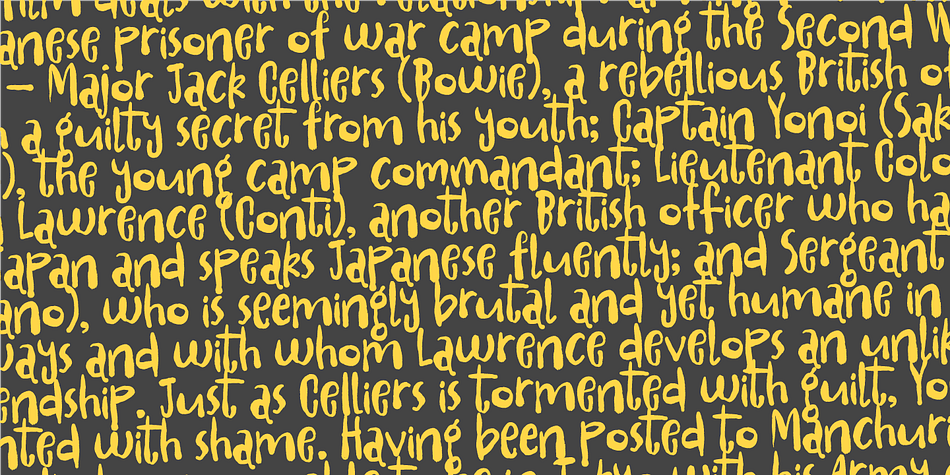 deals with the
anese prisoner of war camp during the Second W
— Major Jack Celliers (Bowie), a rebellious British o
a guilty secret from his youth; Captain Yonoi (Sak
), the young camp commandant; Lieutenant Colo
Lawrence (Conti), another British officer who ha
apan and speaks Japanese fluently; and Sergeant
ano), who is seemingly brutal and yet humane in
ways and with whom Lawrence develops an unlik
endship. Just as Celliers is tormented with guilt, Yo
nted with shame. Having been posted to Manchur